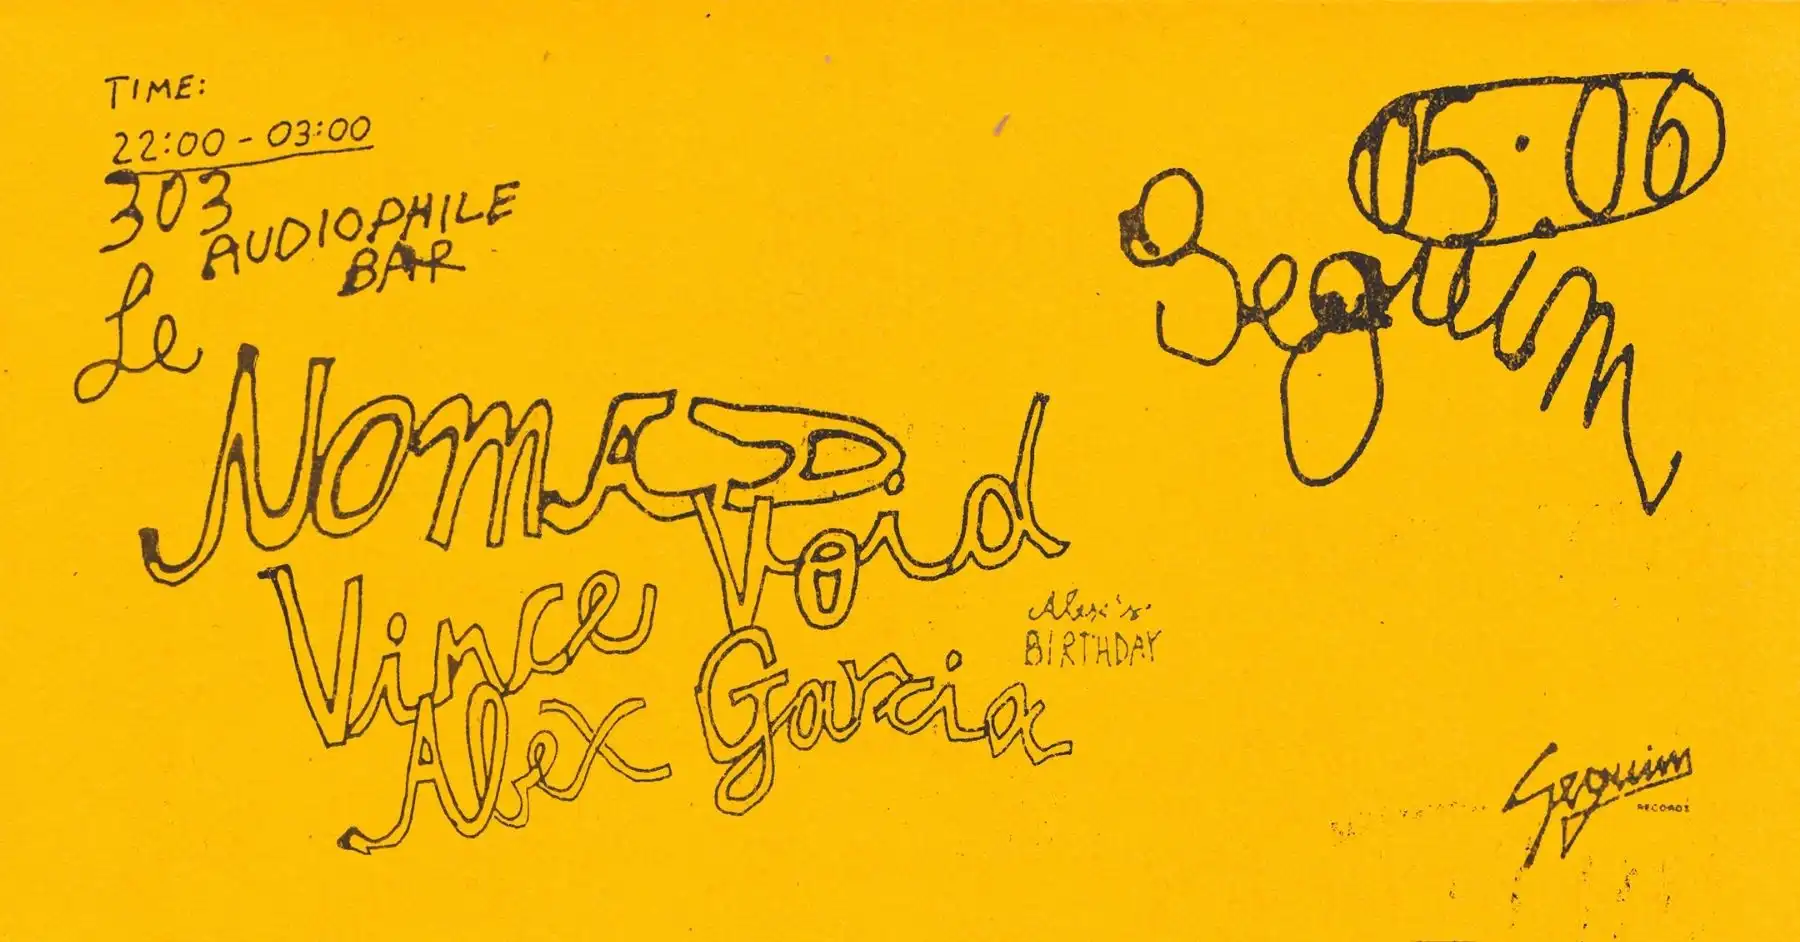 TIME:
22:00 - 03:00
303
AUDIOPHILE
BAR
05.06
Seguim
Le
Nomad
Void
Vince
Alex Garcia
Alex's
BIRTHDAY
Seguim
RECORDS